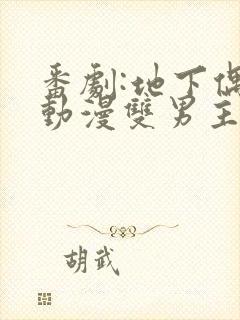 番劇:地下偶
動漫雙男主
胡武